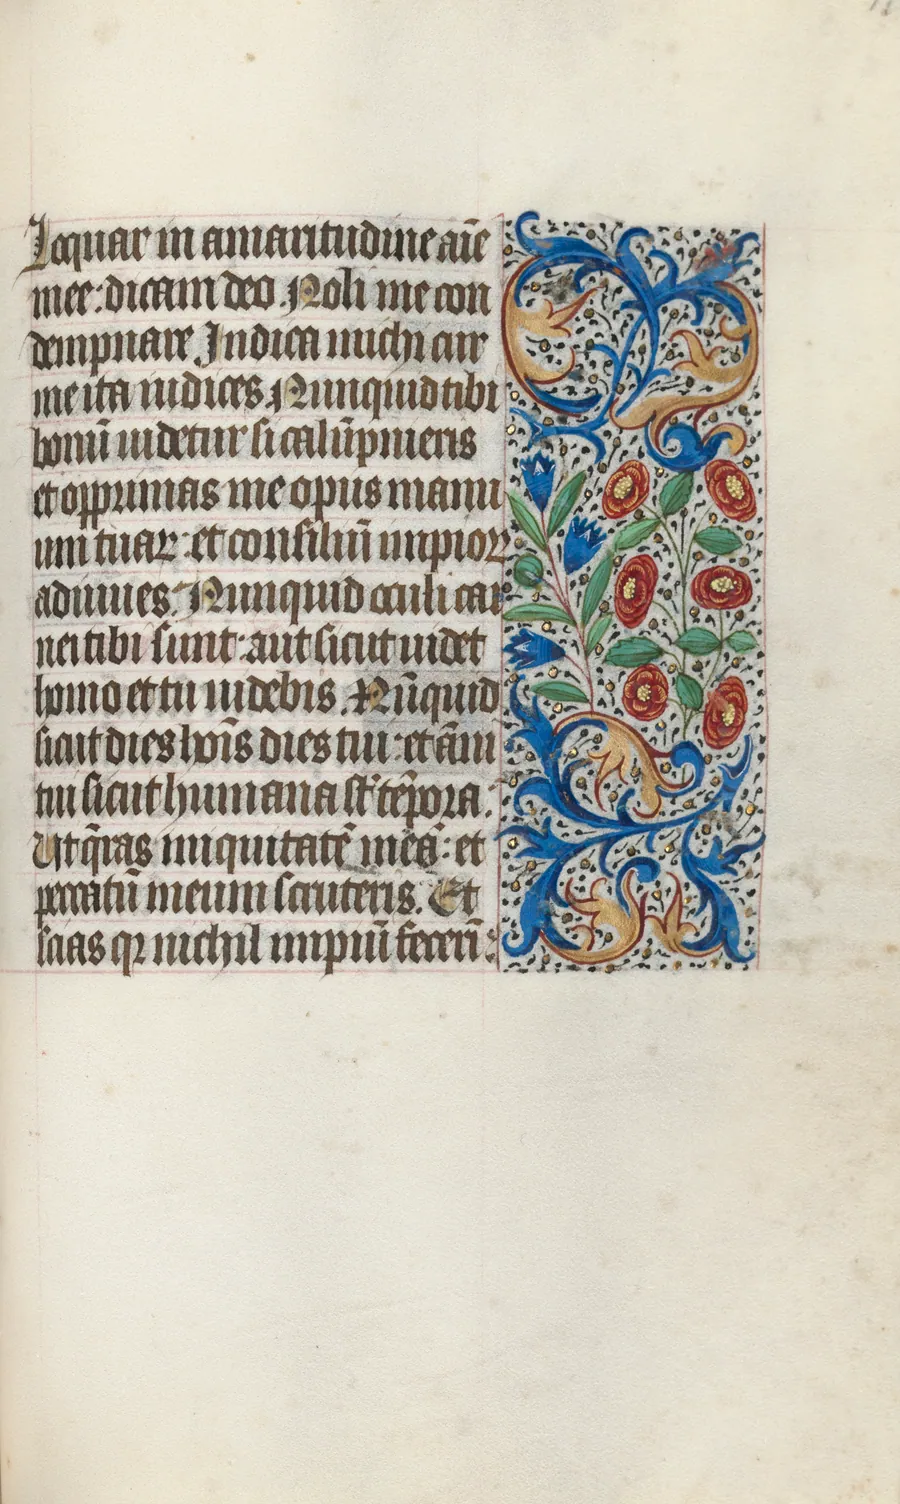 loquar in amaritudine aīe
mee: dicam deo. Noli me con
dempnare. Indica michi cur
me ita iudices. Nunquid tibi
bonū uidetur si calūpnieris
et opprimas me opus manu
um tuaꝝ: et consiliū impioꝝ
adiuues. Nunquid oculi car
nei tibi sunt: aut sicut uidet
homo et tu uidebis. Nūquid
sicut dies hoīs dies tui: et āni
tui sicut humana st̄ tēpora.
Ut q̄ras iniquitatē meā: et
peccatū meum scruteris. Et
scias qꝛ nichil impiū fecerī: